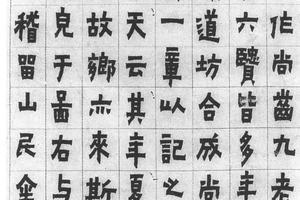 作尚齒九老
六賢皆多年
道坊合成尚
一章以記之
天云其年夏
故鄉亦來斯
皃于啚右与
稽留山民金